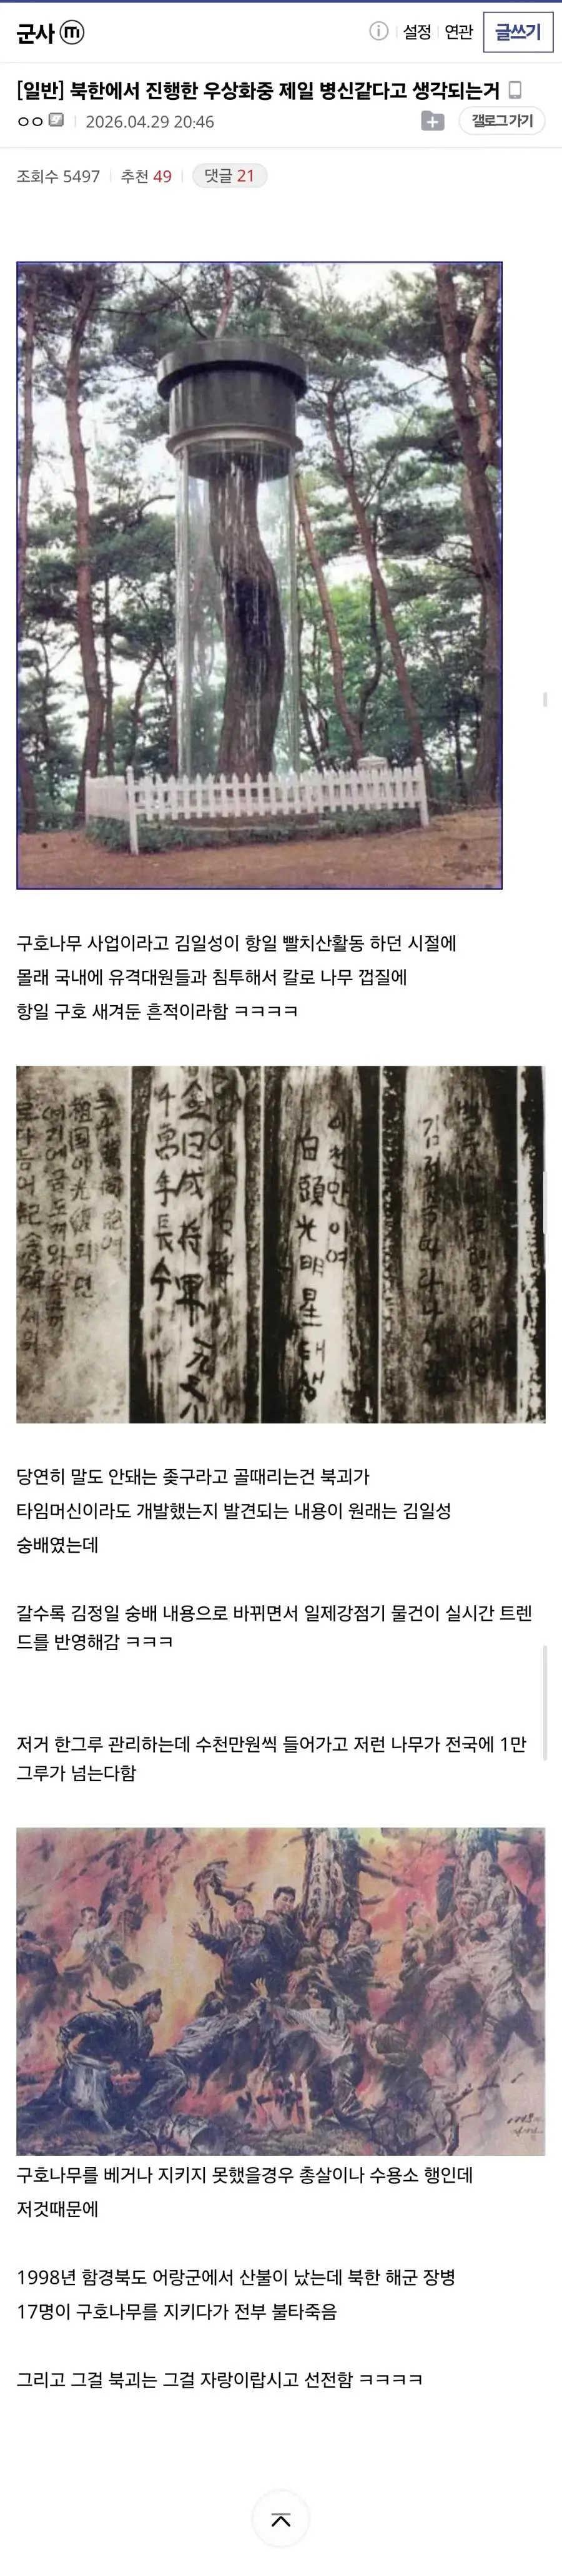 군사 m
설정 연관 글쓰기
[일반] 북한에서 진행한 우상화중 제일 병신같다고 생각되는거
ㅇㅇ 2026.04.29 20:46
갤로그 가기
조회수 5497 추천 49 댓글 21
구호나무 사업이라고 김일성이 항일 빨치산활동 하던 시절에
몰래 국내에 유격대원들과 침투해서 칼로 나무 껍질에
항일 구호 새겨둔 흔적이라함 ㅋㅋㅋㅋ
金日成将軍
千萬年長久
白頭光明星
당연히 말도 안돼는 좆구라고 골때리는건 북괴가
타임머신이라도 개발했는지 발견되는 내용이 원래는 김일성
숭배였는데
갈수록 김정일 숭배 내용으로 바뀌면서 일제강점기 물건이 실시간 트렌
드를 반영해감 ㅋㅋㅋ
저거 한그루 관리하는데 수천만원씩 들어가고 저런 나무가 전국에 1만
그루가 넘는다함
구호나무를 베거나 지키지 못했을경우 총살이나 수용소 행인데
저것때문에
1998년 함경북도 어랑군에서 산불이 났는데 북한 해군 장병
17명이 구호나무를 지키다가 전부 불타죽음
그리고 그걸 북괴는 그걸 자랑이랍시고 선전함 ㅋㅋㅋㅋ